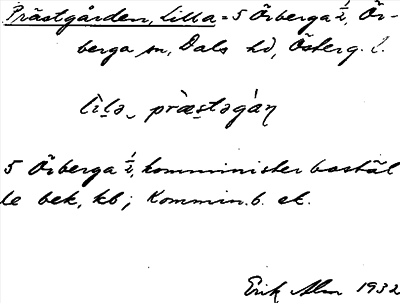 Prästgården, Lilla = 5 Örberga ½, Ör-
berga sn, Dals hd, Österg. l.
lìla_ præ̀stəgàɳ
5 Örberga ½, komministerboställ
le bek, kb; Kommin.b. ek.
Erik Alm 1932